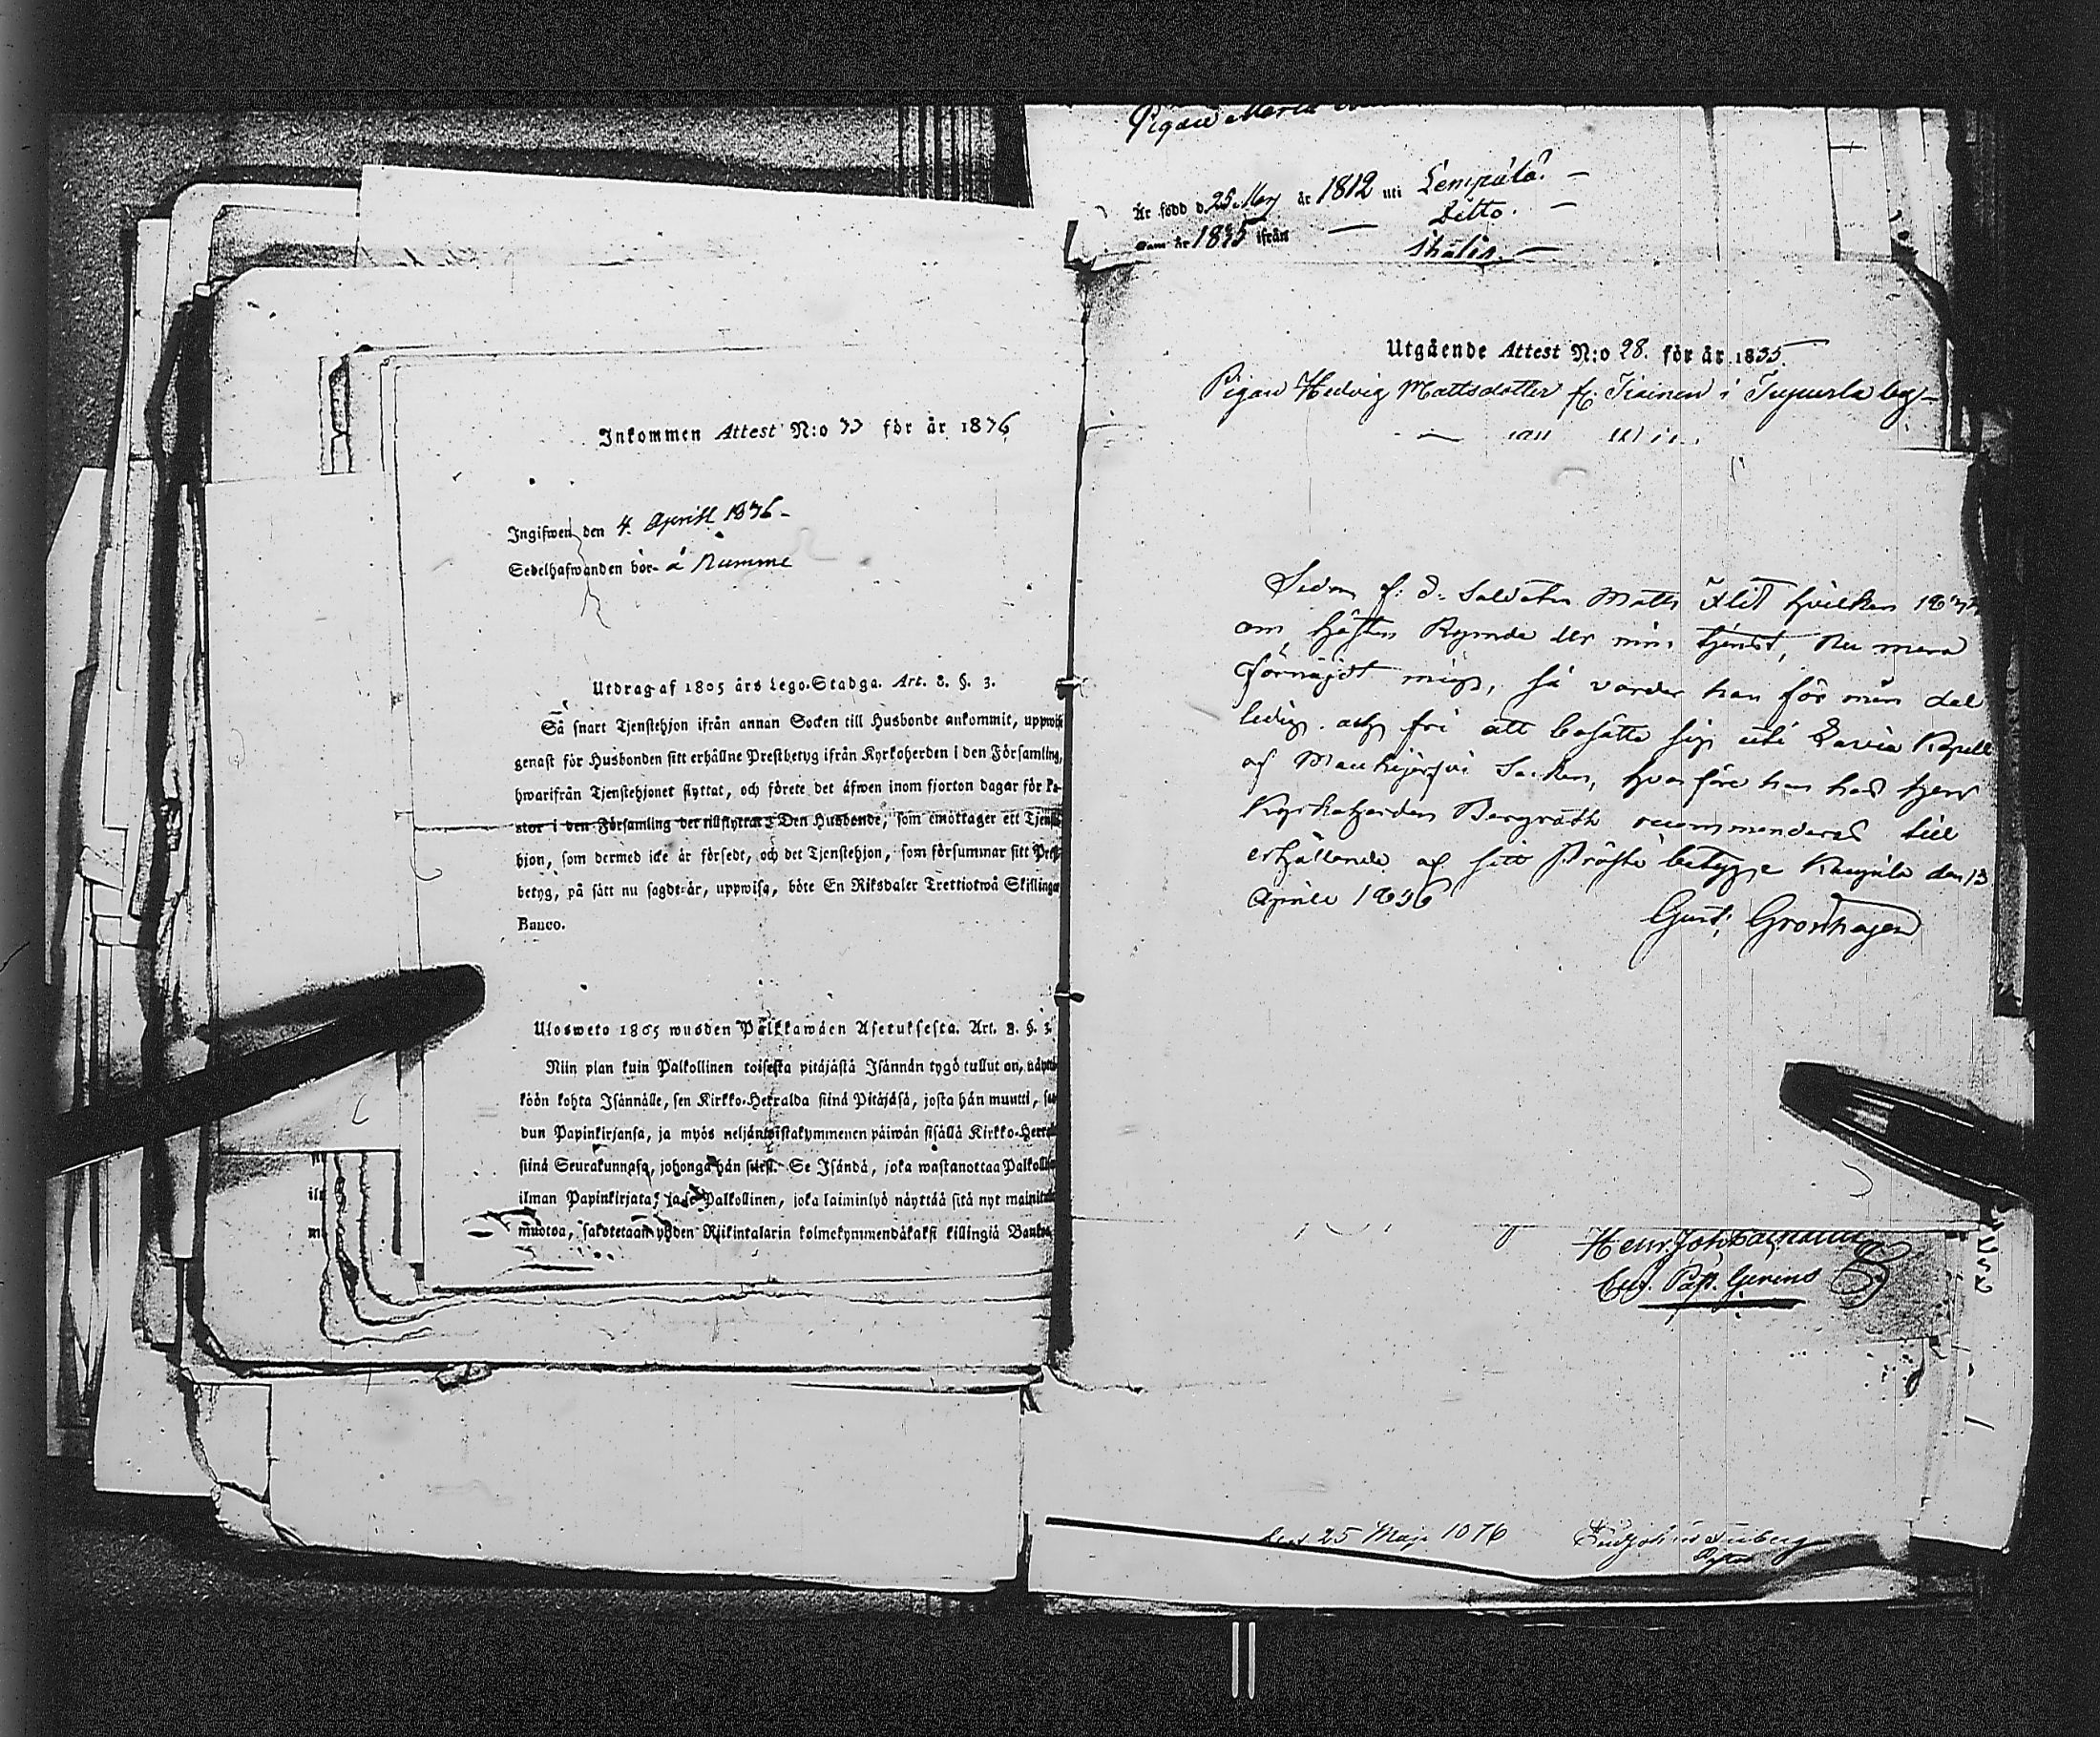 Inkommen Attest N:o 33 för år 1836
Ingifwen den 4. Aprill 1836
Sedelhafwanden bor å Numme
Utdrag af 1805 års Lego-Stadga. Art. 8. §. 3.
Så snart Tjenstehjon ifrån annan Socken till Husbonde ankommit, uppwise
genast för Husbonden sitt erhållne Prestbetyg ifrån Kyrkoherden i den Församling,
hwarifrån Tjenstehjonet flyttat, och förete det äfwen inom fjorton dagar för Pa-
stor i den Församling der tillflyttat. Den Husbonde, som emottager ett Tjenste
hjon, som dermed icke är försedt, och det Tjenstehjon, som försummar sitt Prest
betyg, på sätt nu sagdt är, uppwisa, böte En Riksdaler Trettiotwå Skillingar
Banco.
Ulosweto 1805 wuoden Palkkawäen Asetuksesta. Art. 8. §. 3.
Niin pian kuin Palkollinen toisesta pitäjästä Isännän tygö tullut on, näyttä
köön kohta Isännälle, sen Kirkko-Herralda siinä Pitäjäsä, josta hän muutti, saa
dun Papinkirjansa, ja myös neljäntoistakymmenen päiwän sisällä Kirkko-Herra
siinä Seurakunnasa, johonga hän siirsi. Se Isändä, joka wastanottaa Palkollisen
ilman Papinkirjata, ja se Palkollinen, joka laiminlyö näyttää sitä nyt mainitulla
muotoa, sakotetaan yhden Riikintalarin kolmekymmendäkaksi killingiä Bankos
Pigan Maria
Är född d 25 May år 1812 uti Lempälä.
Kom år 1835 ifrån Ditto.
Utgående Attest N:o 28. för år 1835
Pigan Hedvig Mattsdotter fr. Tiainen i Tujurla beg-
Sedan f. d. Soldaten Matts Flit hvilken 1834
om hösten Rymde ur min tjenst, nu mera
förnöjdt mig, så varder han för min del
ledig och fri att besätta sig uti Lavia Kapell
af Mouhijärfvi Socken, hvarföre han hos herr
Kyrkoherden Bergroth recommenderas till
erhållande af sitt Präste betyg Karjula den 13
Aprill 1836
Gust. Gronhagen
Henr. Joh.
Past. Gerens
den 25 Maji 1836